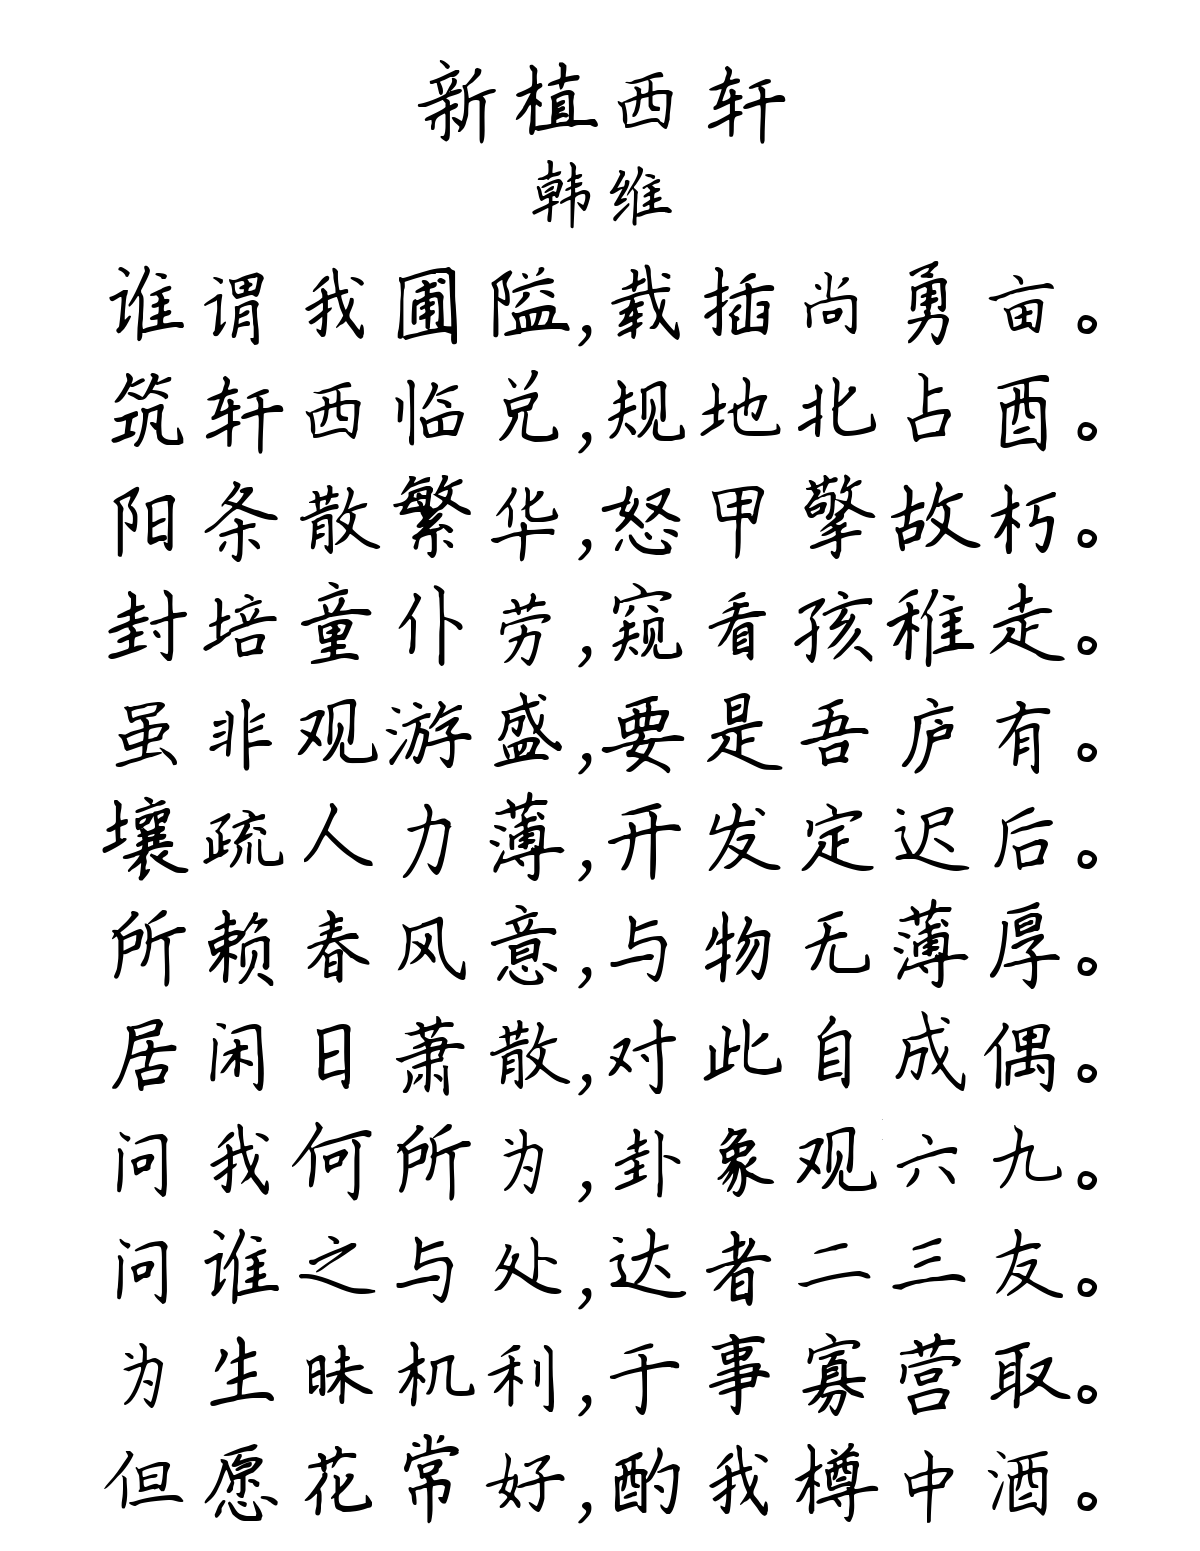 新植西轩
韩维
谁谓我圃隘,载插尚勇亩。
筑轩西临兑,规地北占酉。
阳条散繁华,怒甲擎故朽。
封培童仆劳,窥看孩稚走。
虽非观游盛,要是吾庐有。
壤疏人力薄,开发定迟后。
所赖春风意,与物无薄厚。
居闲日萧散,对此自成偶。
问我何所为,卦象观六九。
问谁之与处,达者二三友。
为生昧机利,于事寡营取。
但愿花常好,酌我樽中酒。